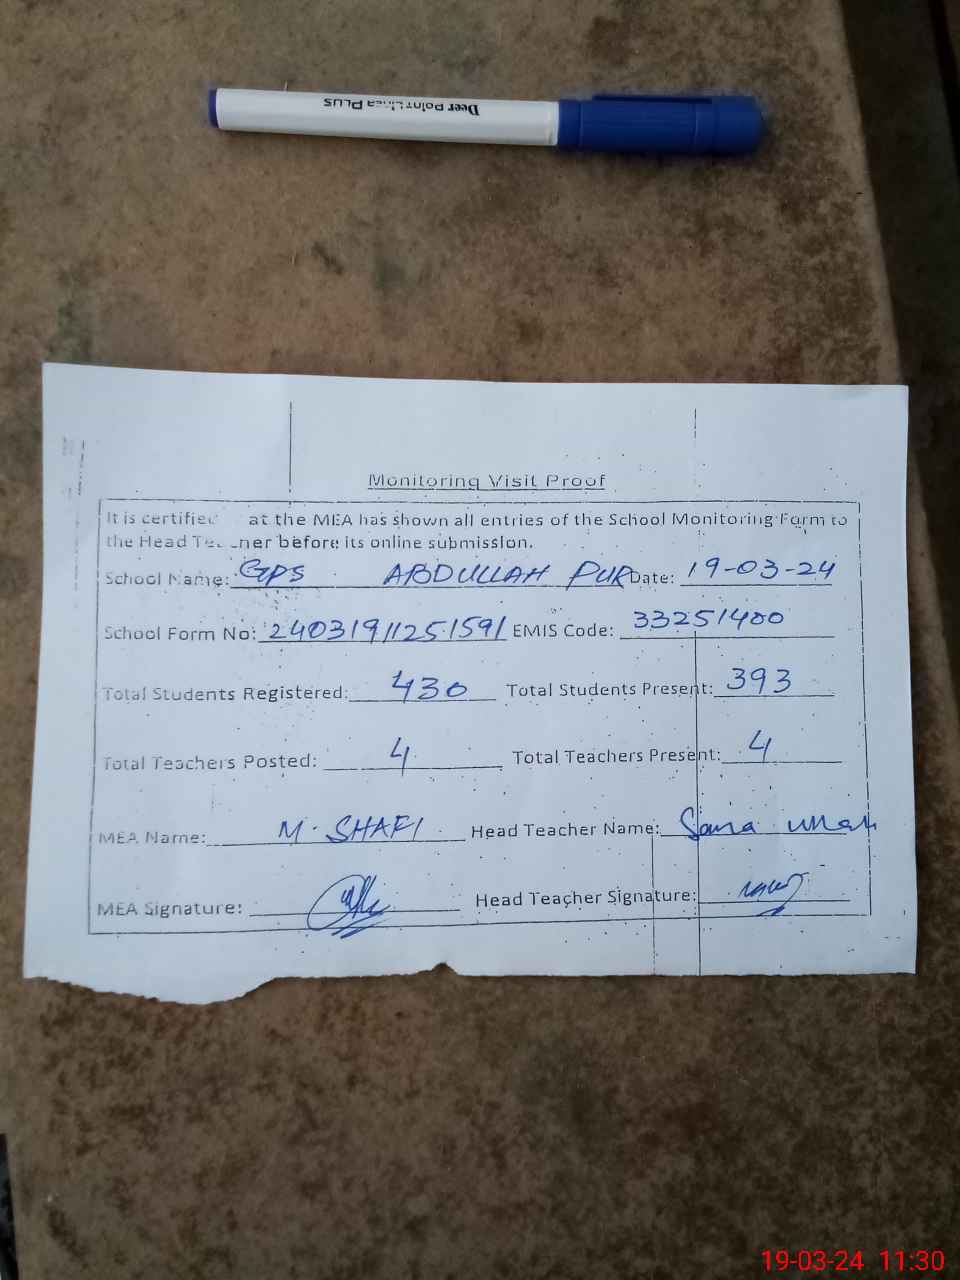 Deer Point Liner PLUS
Monitoring Visit Proof
It is certified at the MEA has shown all entries of the School Monitoring Form to
the Head Teacher before its online submission.
School Name: GPS ABDULLAH PUR Date: 19-03-24
School Form No: 24031911251591 EMIS Code: 33251400
Total Students Registered: 430 Total Students Present: 393
Total Teachers Posted: 4 Total Teachers Present: 4
MEA Name: M. SHAFI Head Teacher Name: Sana ullah
MEA Signature: Head Teacher Signature:
19-03-24 11:30